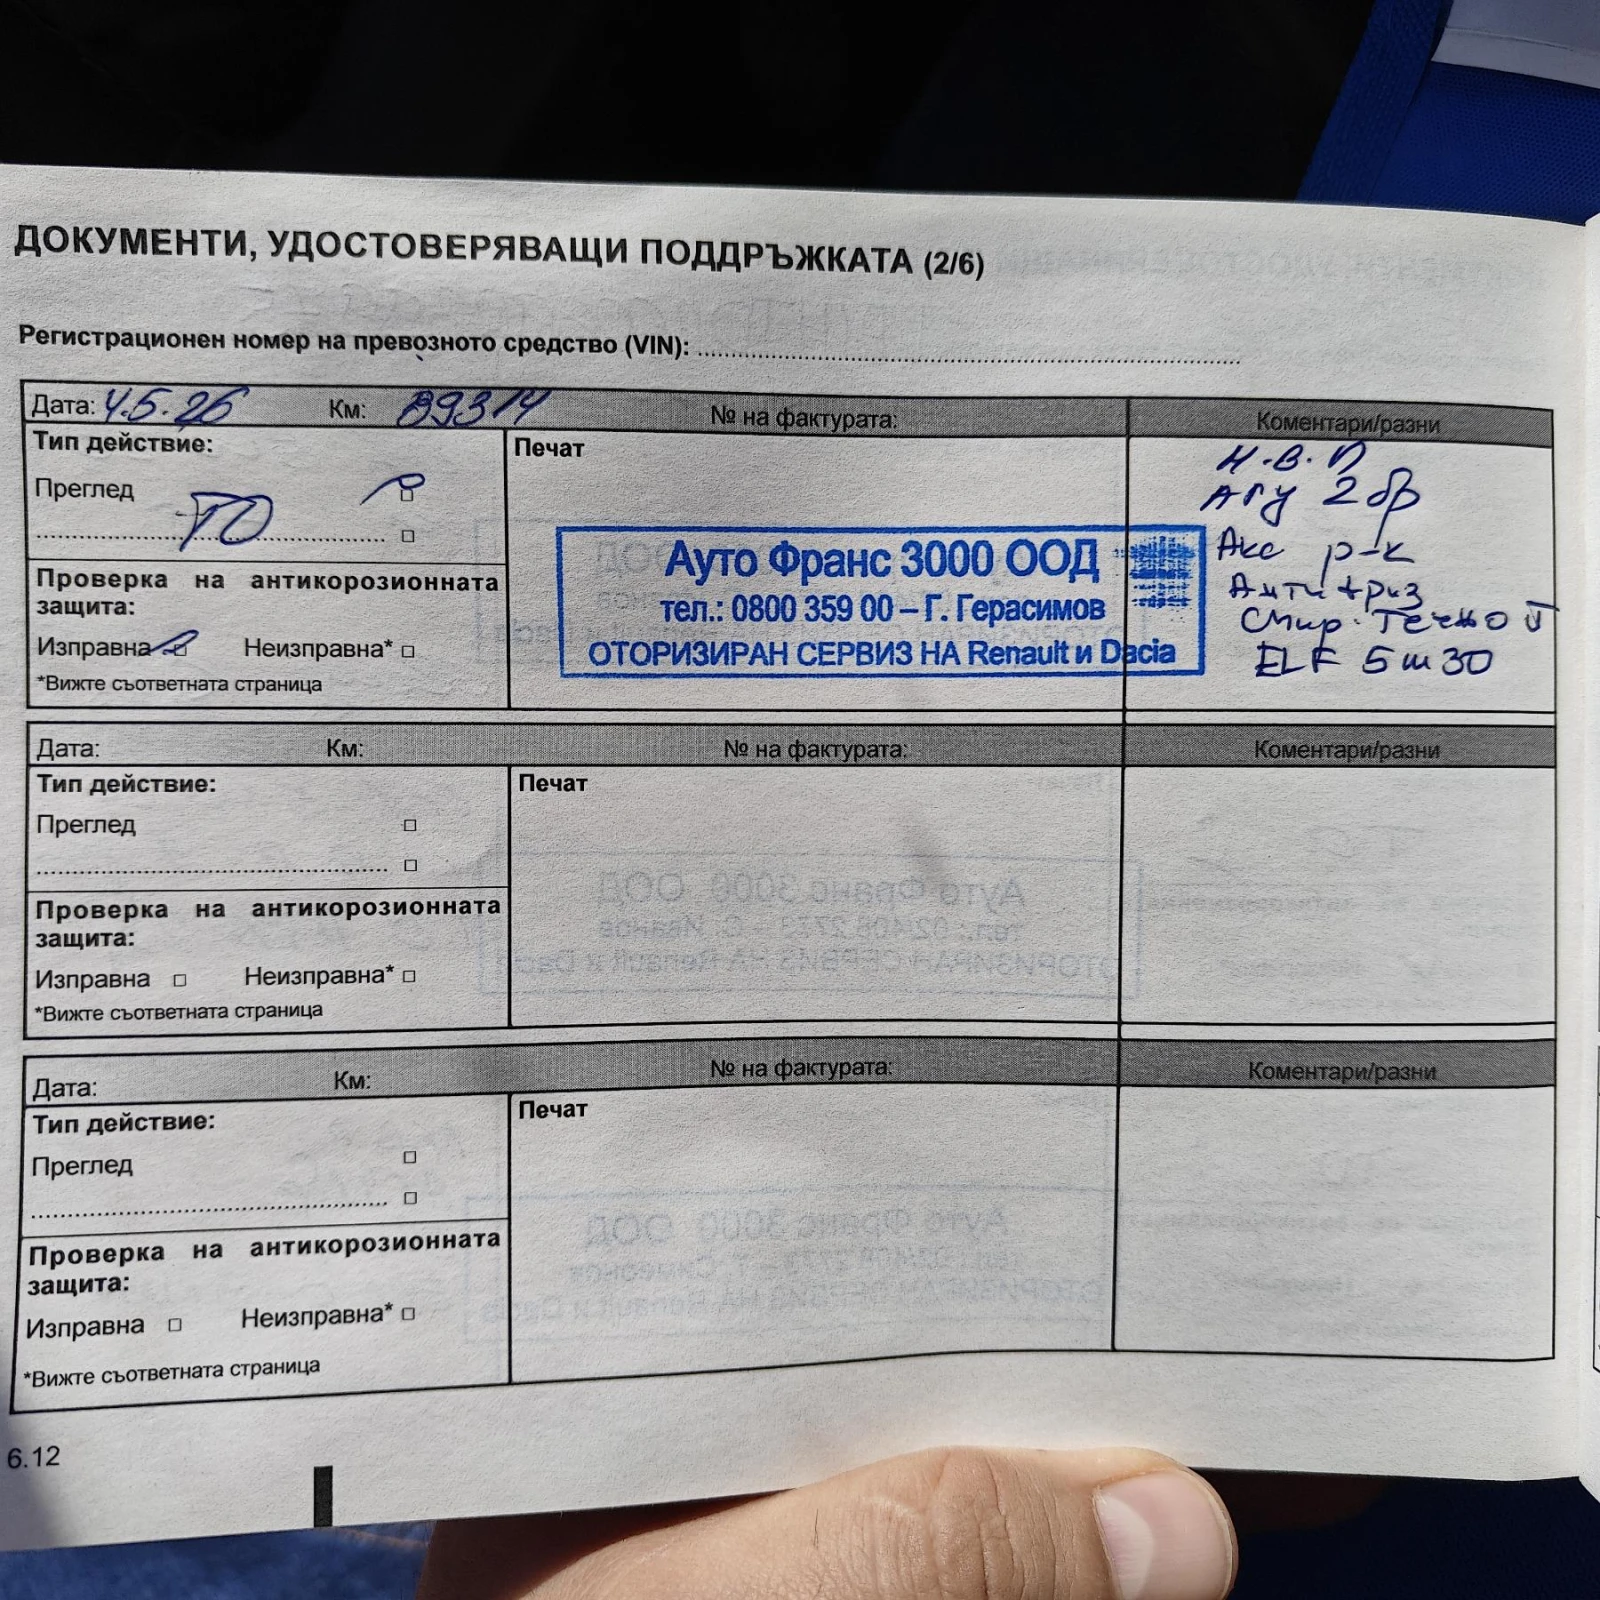 ДОКУМЕНТИ, УДОСТОВЕРЯВАЩИ ПОДДРЪЖКАТА (2/6)
Регистрационен номер на превозното средство (VIN):
Дата: 4.5.26 Км: № на фактурата: Коментари/разни
Тип действие:
Преглед
ТО
Проверка на антикорозионната
защита:
Изправна Неизправна*
*Вижте съответната страница
Печат
Ауто Франс 3000 ООД
тел.: 0800 359 00 – Г. Герасимов
ОТОРИЗИРАН СЕРВИЗ НА Renault и Dacia
2 бр
Акс р-к
Антифриз
Течно
ELF 5w30
Дата: Км: № на фактурата: Коментари/разни
Тип действие:
Преглед
Проверка на антикорозионната
защита:
Изправна Неизправна*
*Вижте съответната страница
Печат
Дата: Км: № на фактурата: Коментари/разни
Тип действие:
Преглед
Проверка на антикорозионната
защита:
Изправна Неизправна*
*Вижте съответната страница
Печат
6.12